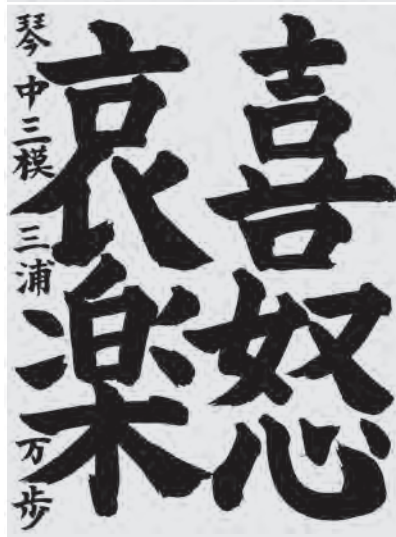 喜怒
哀楽
琴 中三 模 三浦 万歩